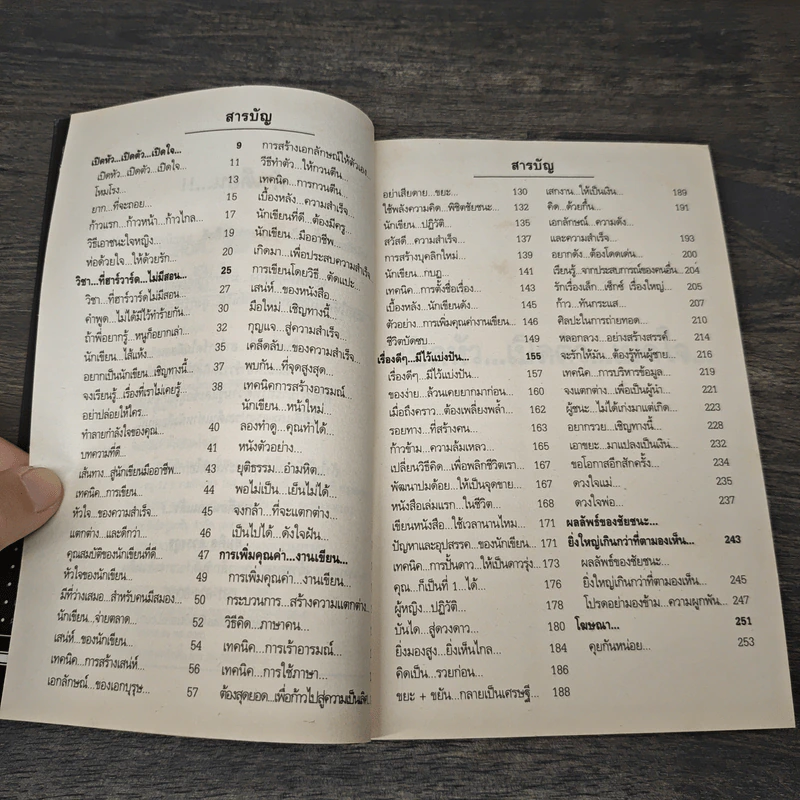 สารบัญ
เปิดหัว...เปิดตัว...เปิดใจ... 9
เปิดหัว...เปิดตัว...เปิดใจ... 11
โหมโรง... 13
ยาก...ที่จะถอย... 15
ก้าวแรก...ก้าวหน้า...ก้าวไกล... 17
วิธีเอาชนะใจหญิง... 19
ห่อด้วยใจ...ให้ด้วยรัก... 20
วิชา...ที่ฮาร์วาร์ด...ไม่มีสอน... 25
วิชา...ที่ฮาร์วาร์ดไม่มีสอน... 27
คำพูด...ไม่ได้มีไว้ทำร้ายกัน... 30
ถ้าพี่อยากรู้...หนูก็อยากเล่า... 32
นักเขียน...ไส้แห้ง... 35
อยากเป็นนักเขียน...เชิญทางนี้... 37
จงเรียนรู้...เรื่องที่เราไม่เคยรู้... 38
อย่าปล่อยให้ใคร
ทำลายกำลังใจของคุณ... 40
บทความที่ดี... 41
เส้นทาง...สู่นักเขียนมืออาชีพ... 43
เทคนิค...การเขียน... 44
หัวใจ...ของความสำเร็จ... 45
แตกต่าง...และดีกว่า... 46
คุณสมบัติของนักเขียนที่ดี... 47
หัวใจของนักเขียน... 49
มีที่ว่างเสมอ...สำหรับคนมีสมอง... 50
นักเขียน...จ่ายตลาด... 52
เสน่ห์...ของนักเขียน... 54
เทคนิค...การสร้างเสน่ห์... 56
เอกลักษณ์...ของเอกบุรุษ... 57
การสร้างเอกลักษณ์ให้ตัวเอง
วิธีทำตัว...ให้กวนตีน...
เทคนิค...การกวนตีน...
เบื้องหลัง...ความสำเร็จ...
นักเขียนที่ดี...ต้องมีครู...
นักเขียน...มืออาชีพ...
เกิดมา...เพื่อประสบความสำเร็จ
การเขียนโดยวิธี...ตัดแปะ...
เสน่ห์...ของหนังสือ...
มือใหม่...เชิญทางนี้...
กุญแจ...สู่ความสำเร็จ...
เคล็ดลับ...ของความสำเร็จ...
พบกัน...ที่จุดสูงสุด...
เทคนิคการสร้างอารมณ์...
นักเขียน...หน้าใหม่...
ลองทำดู...คุณทำได้...
หนังตัวอย่าง...
ยุติธรรม...อำมหิต...
พอไม่เป็น...เย็นไม่ได้...
จงกล้า...ที่จะแตกต่าง...
เป็นไปได้...ดังใจฝัน...
การเพิ่มคุณค่า...งานเขียน...
การเพิ่มคุณค่า...งานเขียน...
กระบวนการ...สร้างความแตกต่าง...
วิธีคิด...ภาษาคน...
เทคนิค...การเร้าอารมณ์...
เทคนิค...การใช้ภาษา...
ต้องสุดยอด...เพื่อก้าวไปสู่ความเป็นเลิศ
สารบัญ
อย่าเสียดาย...ขยะ... 130
ใช้พลังความคิด...พิชิตชัยชนะ... 132
นักเขียน...ปฏิวัติ... 135
สวัสดี...ความสำเร็จ... 137
การสร้างบุคลิกใหม่... 139
นักเขียน...กบฏ... 141
เทคนิค...การตั้งชื่อเรื่อง... 143
เบื้องหลัง...นักเขียนดัง... 145
ตัวอย่าง...การเพิ่มคุณค่างานเขียน... 146
ชีวิตบัดซบ... 149
เรื่องดีๆ...มีไว้แบ่งปัน... 155
เรื่องดีๆ...มีไว้แบ่งปัน... 157
ของง่าย...ล้วนเคยยากมาก่อน... 160
เมื่อถึงคราว...ต้องเพลี่ยงพล้ำ... 162
รอยทาง...ที่สร้างคน... 163
ก้าวข้าม...ความล้มเหลว... 165
เปลี่ยนวิธีคิด...เพื่อพลิกชีวิตเรา... 167
พัฒนาปมด้อย...ให้เป็นจุดขาย... 167
หนังสือเล่มแรก...ในชีวิต... 169
เขียนหนังสือ...ใช้เวลานานไหม... 171
ปัญหาและอุปสรรค...ของนักเขียน... 171
เทคนิค...การปั้นดาว...ให้เป็นดาวรุ่ง... 173
คุณ...ก็เป็นที่ 1...ได้... 176
ผู้หญิง...ปฏิวัติ... 178
บันได...สู่ดวงดาว... 180
ยิ่งมองสูง...ยิ่งเห็นไกล... 184
คิดเป็น...รวยก่อน... 186
ขยะ + ขยัน...กลายเป็นเศรษฐี... 188
เสกงาน...ให้เป็นเงิน... 189
คิด...ด้วยกึ๋น... 191
เอกลักษณ์...ความดัง
และความสำเร็จ... 193
อยากดัง...ต้องโดดเด่น... 200
เรียนรู้...จากประสบการณ์ของคนอื่น... 204
รักเรื่องเล็ก...เซ็กซ์ เรื่องใหญ่... 205
ก้าว...ทันกระแส... 207
ศิลปะในการถ่ายทอด... 210
หลอกลวง...อย่างสร้างสรรค์... 214
จะรักให้มัน...ต้องรู้ทันผู้ชาย... 216
เทคนิค...การบริหารข้อมูล... 219
จงแตกต่าง...เพื่อเป็นผู้นำ... 221
ผู้ชนะ...ไม่ได้เก่งมาแต่เกิด... 223
อยากรวย...เชิญทางนี้... 228
เอาขยะ...มาแปลงเป็นเงิน... 232
ขอโอกาสอีกสักครั้ง... 234
ดวงใจแม่... 235
ดวงใจพ่อ... 237
ผลลัพธ์ของชัยชนะ...
ยิ่งใหญ่เกินกว่าที่ตามองเห็น... 243
ผลลัพธ์ของชัยชนะ...
ยิ่งใหญ่เกินกว่าที่ตามองเห็น... 245
โปรดอย่ามองข้าม...ความผูกพัน... 247
โฆษณา... 251
คุยกันหน่อย... 253